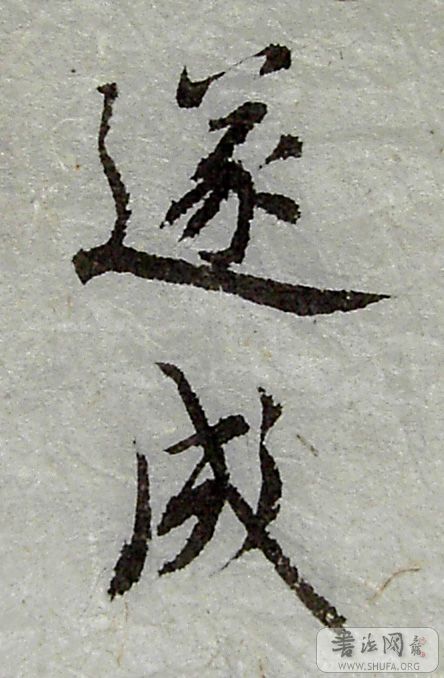 遂成
書法网
WWW.SHUFA.ORG